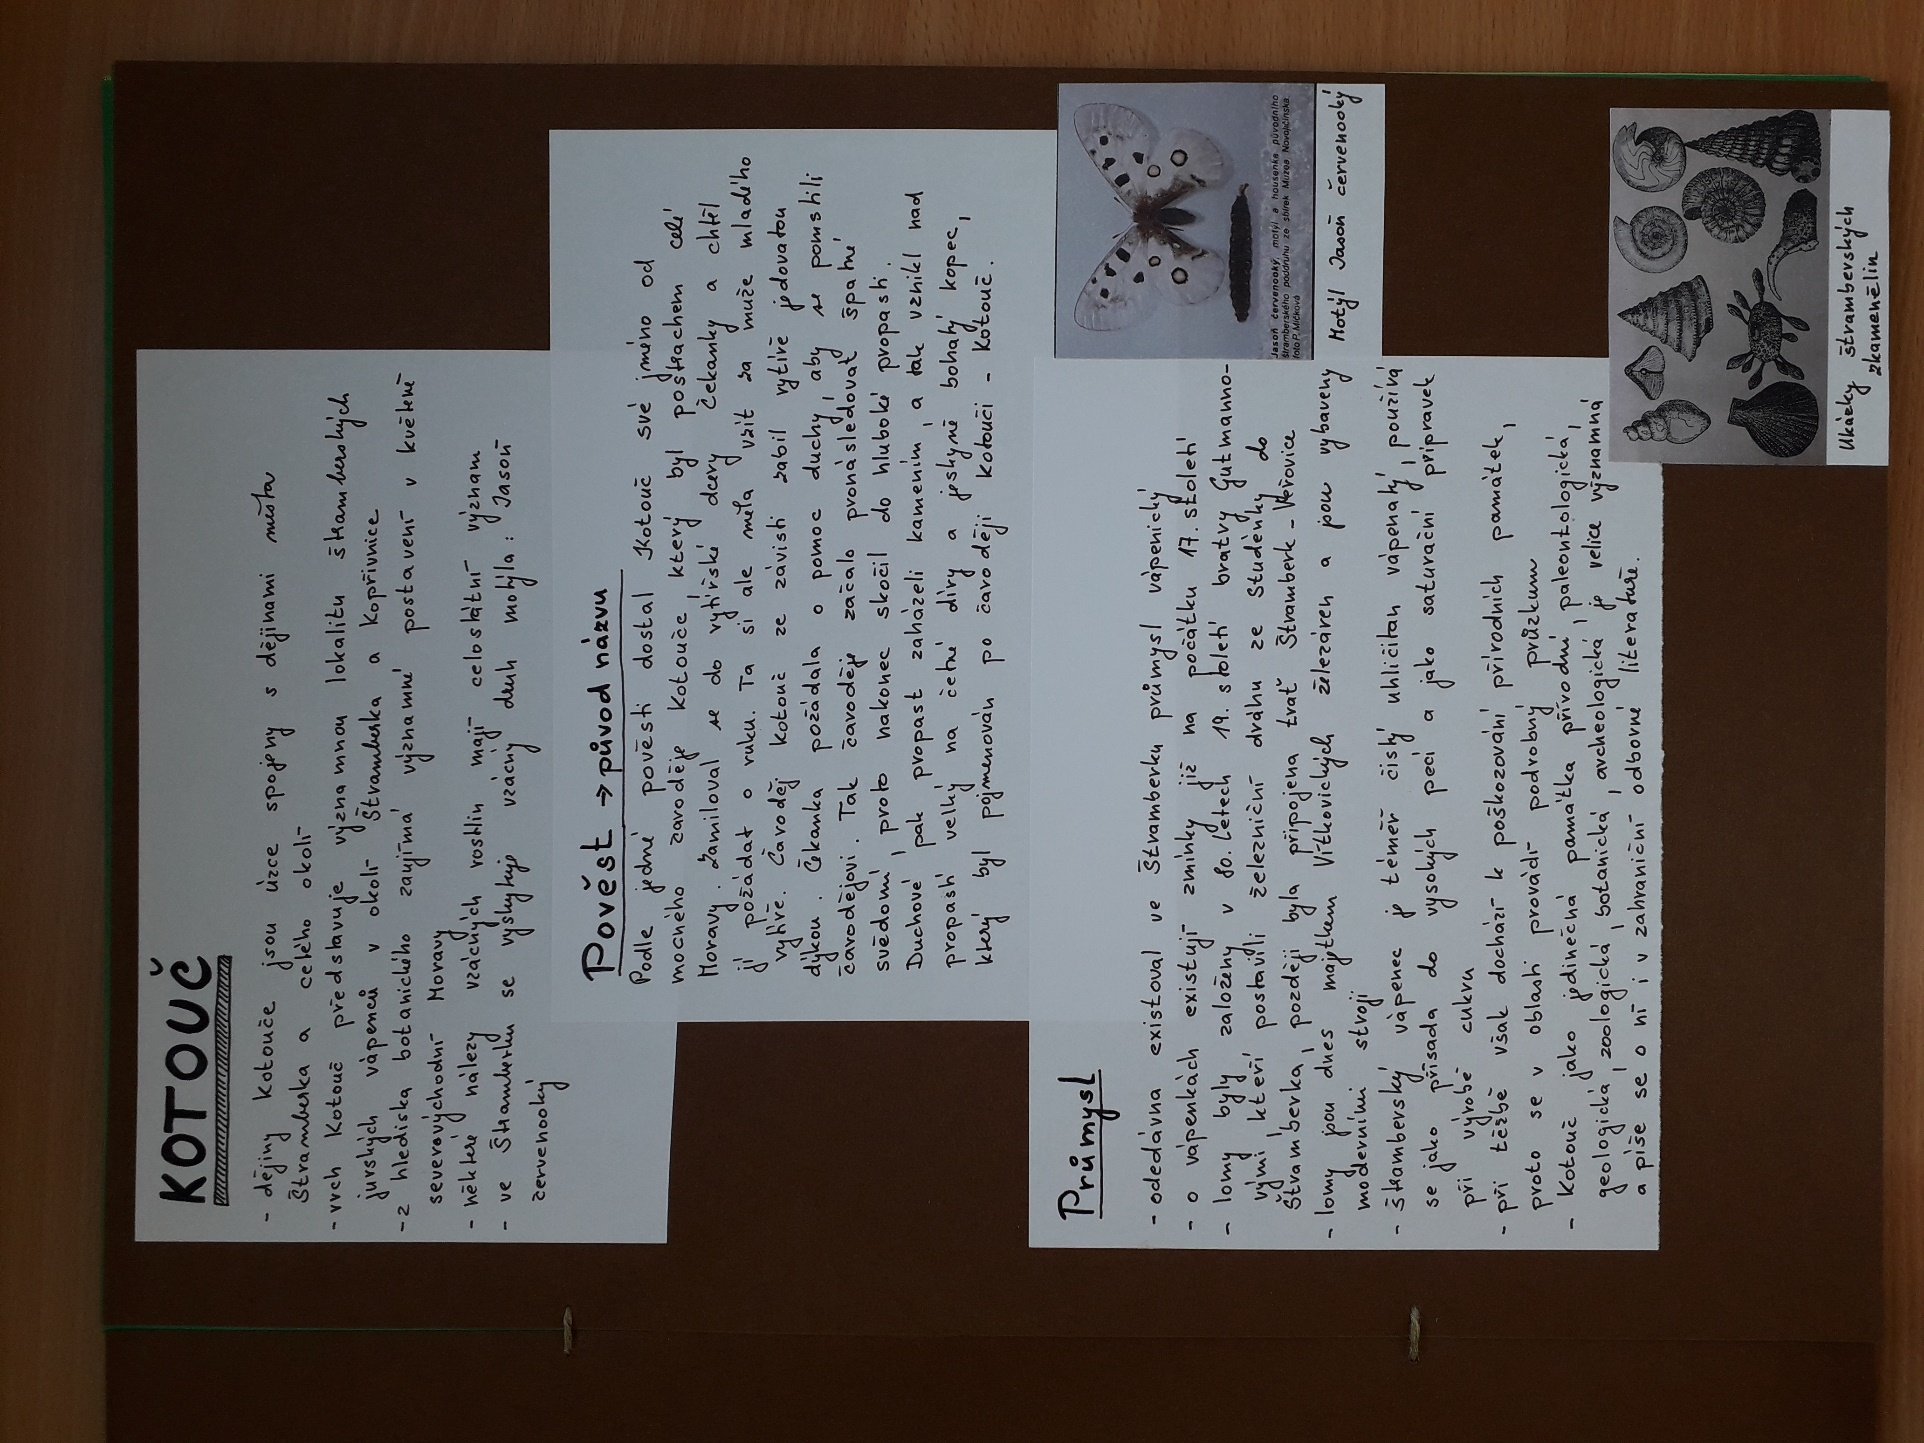 KOTOUČ
- dějiny Kotouče jsou úzce spojeny s dějinami města
Štramberka a celého okolí
- vrch Kotouč představuje významnou lokalitu štramberských
jurských vápenců v okolí Štramberka a Kopřivnice
- z hlediska botanického zaujímá významné postavení v květeně
severovýchodní Moravy
- některé nálezy vzácných rostlin mají celostátní význam
- ve Štramberku se vyskytuje vzácný druh motýla: Jasoň
červenooký
Pověst → původ názvu
Podle jedné pověsti dostal Kotouč své jméno od
mocného čaroděje Kotouče, který byl postrachem celé
Moravy. Zamiloval se do rytířské dcery Čekanky a chtěl
ji požádat o ruku. Ta si ale měla vzít za muže mladého
rytíře. Čaroděj Kotouč ze závisti zabil rytíře jedovatou
dýkou. Čekanka požádala o pomoc duchy, aby se pomstili
čarodějovi. Tak čaroděje začalo pronásledovat špatné
svědomí, proto nakonec skočil do hluboké propasti.
Duchové pak propast zaházeli kamením, a tak vznikl nad
propastí velký na četné díry a jeskyně bohatý kopec,
který byl pojmenován po čaroději Kotouči - Kotouč.
Jasoň červenooký, motýl a housenka původního
štramberského poddruhu ze sbírek Muzea Novojičínska.
foto P. Mičková
Motýl Jasoň červenooký
Průmysl
- odedávna existoval ve Štramberku průmysl vápenický
- o vápenkách existují zmínky již na počátku 17. století
- lomy byly založeny v 80. letech 19. století bratry Gutmanno-
vými, kteří postavili železniční dráhu ze Studénky do
Štramberka, později byla připojena trať Štramberk - Veřovice
- lomy jsou dnes majetkem Vítkovických železáren a jsou vybaveny
moderními stroji
- štramberský vápenec je téměř čistý uhličitan vápenatý, používá
se jako přísada do vysokých pecí a jako saturační přípravek
při výrobě cukru
- při těžbě však dochází k poškozování přírodních památek,
proto se v oblasti provádí podrobný průzkum
- Kotouč jako jedinečná památka přírodní, paleontologická,
geologická, zoologická, botanická, archeologická je velice významná
a píše se o ní i v zahraniční odborné literatuře.
Ukázky štramberských
zkamenělin